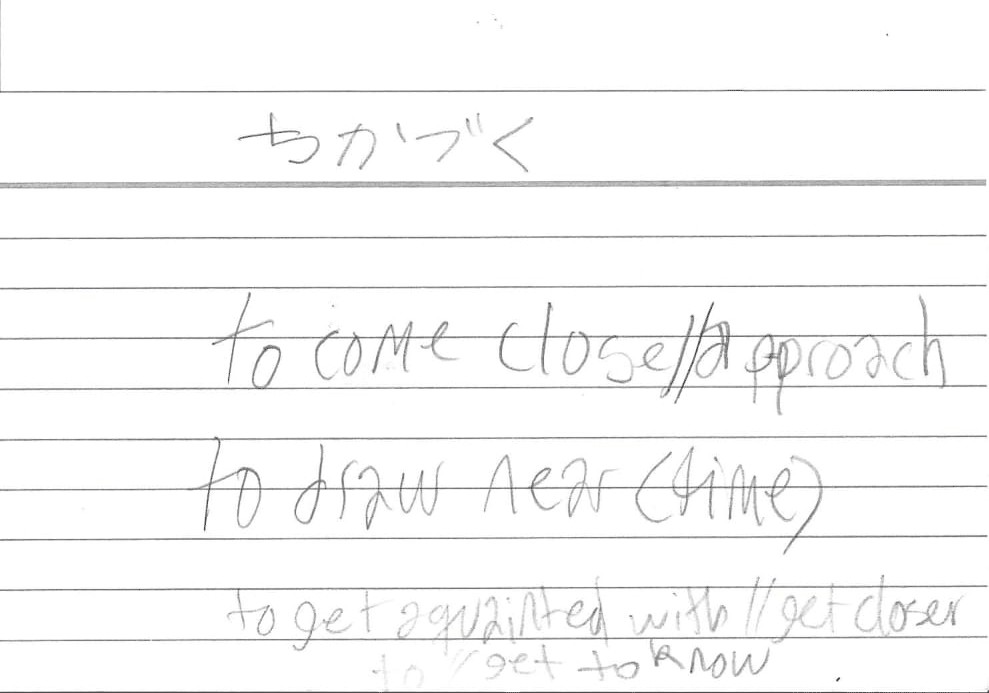 ちかづく
to come close//approach
to draw near (time)
to get aquainted with//get closer
to//get to know